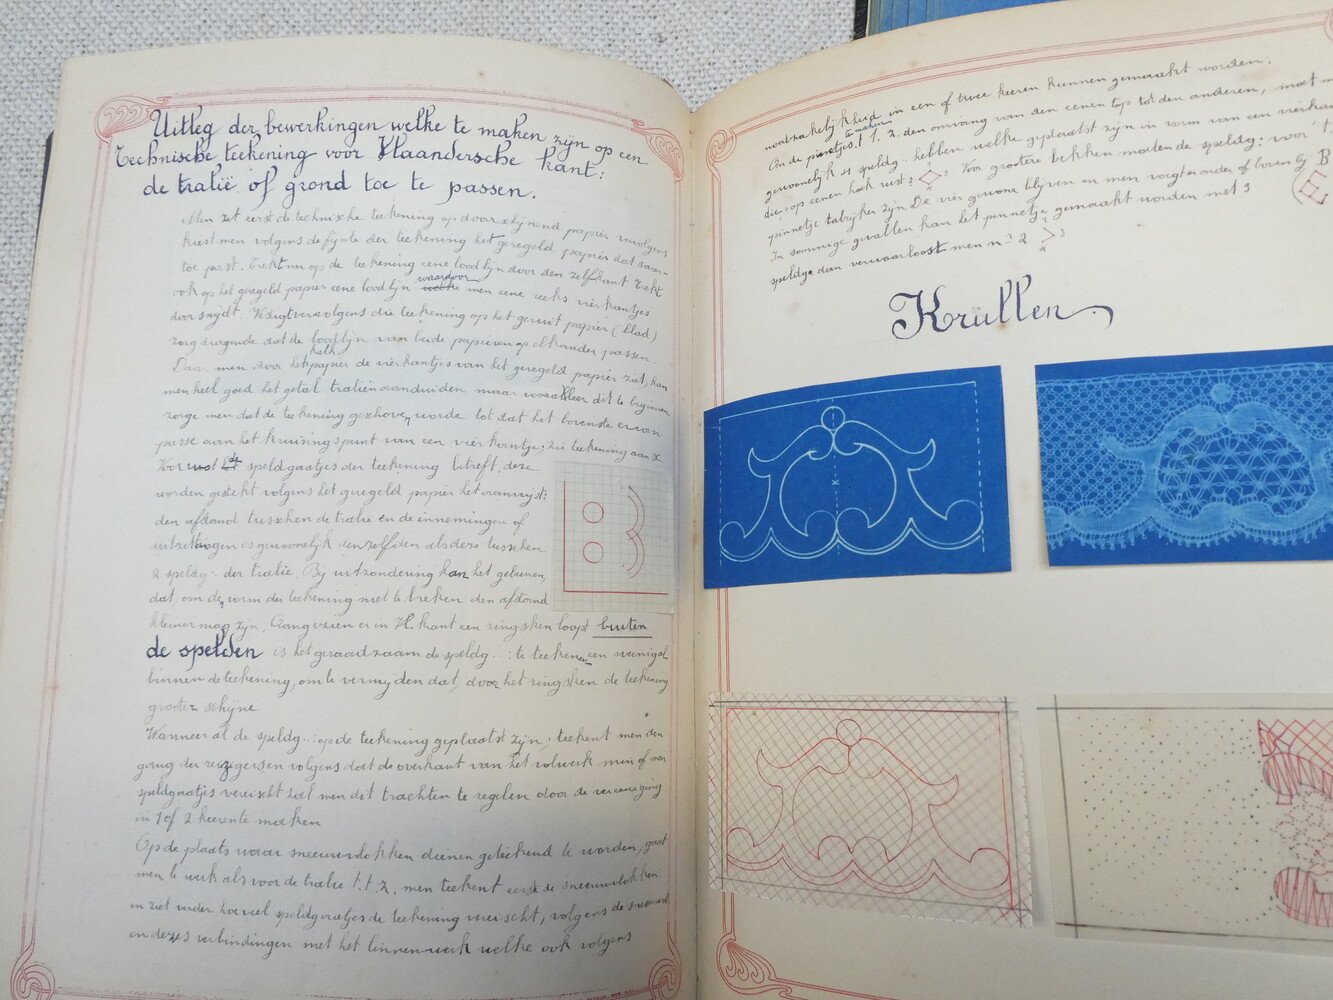 Uitleg der bewerkingen welke te maken zijn op een
Technische teekening voor Vlaandersche kant:
de tralië of grond toe te passen.
Men zet eerst de technische teekening op doorschijnend papier vervolgens
kiest men volgens de fijnte der teekening het geregeld papier dat daar-
toe past. Trekt nu op de teekening eene loodlijn door den zelfkant trekt
ook op het geregeld papier eene loodlijn waardoor men eene reeks vierkantjes
doorsnijdt. Vestigt vervolgens die teekening op het geruit papier (blad)
zorg dragende dat de loodlijn van beide papieren op elkander passen.
Daar men door het kalkpapier de vierkantjes van het geregeld papier ziet, kan
men heel goed het getal traliën aanduiden maar vooraleer dit te beginnen
zorge men dat de teekening geschoven worde tot dat het bovenste ervan
passe aan het kruisingspunt van een vierkantje; zie teekening aan X
Voor wat de speldgaatjes der teekening betreft, deze
worden gestekt volgens het geregeld papier het aanwijst:
den afstand tusschen de tralie en de innemingen of
uitzettingen is gewoonelijk denzelfden als deze tusschen
2 speldg. der tralie. Bij uitzondering kan het gebeuren,
dat, om de vorm der teekening niet te breken den afstand
kleiner mag zijn. Aangezien er in Vl. kant een ringsken loopt buiten
de spelden is het geraadzaam de speldg...: te teekenen een weinigsl
binnen de teekening, om te vermijden dat, door het ringsken de teekening
grooter schijne
Wanneer al de speldg... op de teekening geplaatst zijn, teekent men den
gang der reizigersen volgens dat de overkant van het volwerk min of meer
speldgaatjes vereischt zal men dit trachten te regelen door de vereeniging
in 1 of 2 keeren te maken
Op de plaats waar sneeuwvlokken dienen geteekend te worden, gaat
men te werk als voor de tralie t.t.z. men teekent eerst de sneeuwvlokken
en ziet verder hoeveel speldgaatjes de teekening vereischt, volgens de
en dezes verbindingen met het linnenwerk welke ook volgens
noodzakelijkheid in een of twee keeren kunnen gemaakt worden;
Om de pinnetjes te maken t.t.z. den omvang van den eenen top tot den anderen, moet
gewoonelijk 4 speldg. hebben welke geplaatst zijn in vorm van een vierkant
die op eenen hoek rust: Voor grootere bekken moeten de speldg: voor 't
pinnetje talrijker zijn De vier gewone blijven en men voegt er onder of boven bij B
In sommige gevallen kan het pinnetje gemaakt worden met 3
speldg. dan verwaarloost men n: 2
Krullen